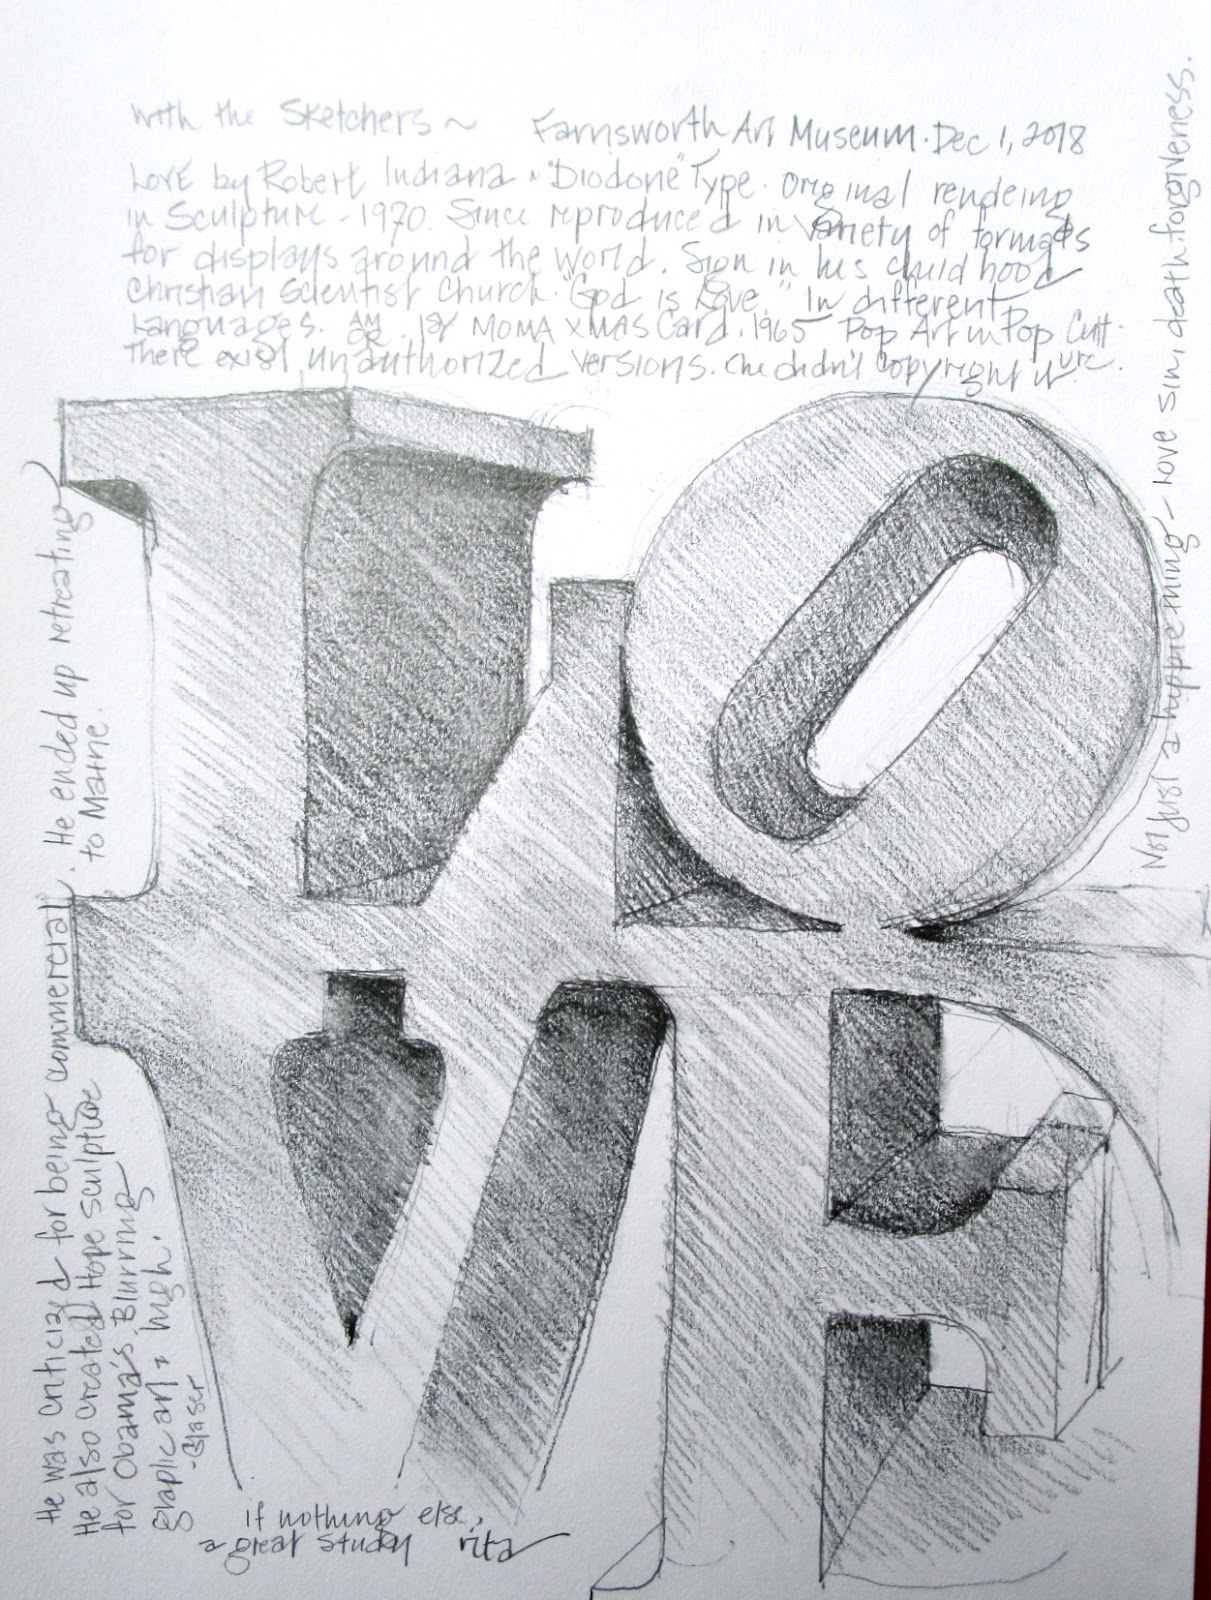 with the Sketchers ~ Farnsworth Art Museum. Dec 1, 2018
LOVE by Robert Indiana ~ "Diodone" Type. Original rendeing
in Sculpture - 1970. Since reproduced in variety of formats
for displays around the world. Sign in his childhood
Christian Scientist Church. "God is Love." In different
Languages. MOMA XMAS Card. 1965 Pop Art in Pop Cult
There exist unauthorized versions. didn't copyright it ure.
Not just a hippie thing - love sin, death, forgiveness.
He was criticized for being commercial. He ended up retreating
to Maine.
He also created Hope sculpture
for Obama's. Blurring
graphic art & high.
- Glaser
if nothing else,
a great study rita
LOVE